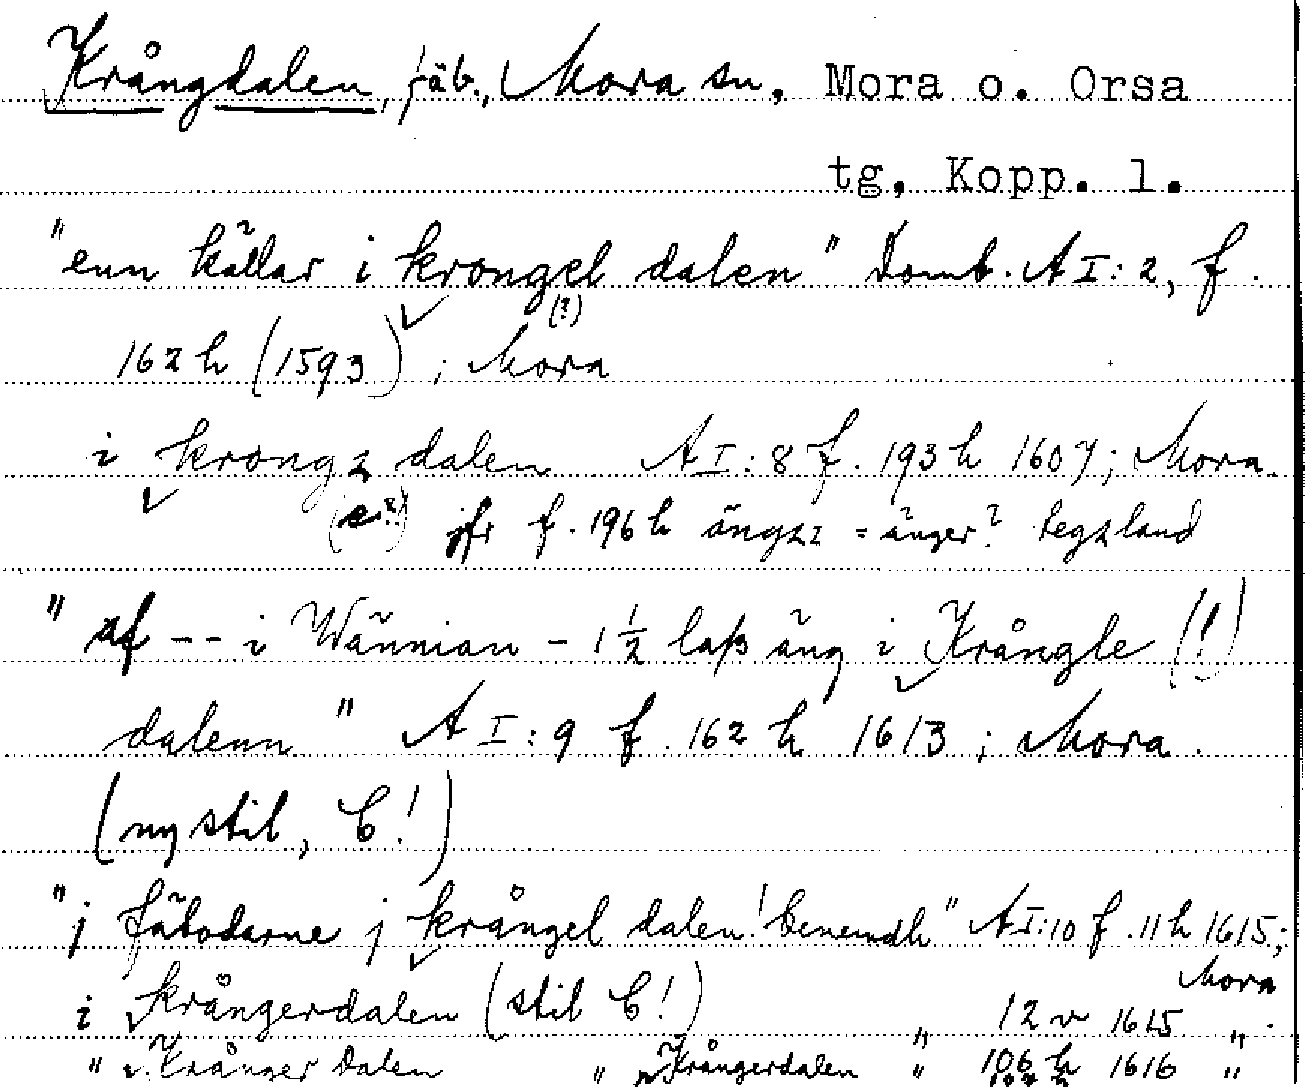 Krångdalen, fäb., Mora sn, Mora o. Orsa
tg, Kopp. l.
"enn källar i krongel dalen" Domb. A I: 2, f.
(?)
162 h (1593); Mora
i krongz dalen A I: 8 f. 193 h 1607; Mora.
(e?) jfr f. 196 h ängzz = änger? tegzland
"af -- i Wännian - 1 1/2 laß äng i Krångle (!)
dalenn" A I: 9 f. 162 h 1613; Mora.
(ny stil, C!)
"j fäbodarne j krångel dalen! benemdh" A I:10 f. 11 h 1615;
Mora
i krångerdalen (stil C!) " 12 v 1615 ".
" Krånger dalen " Krångerdalen " 106 h 1616 "